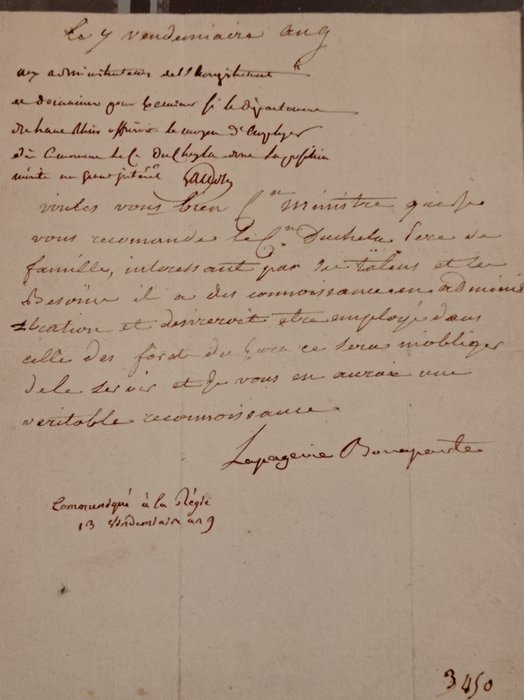 Le 7 vendemiaire an 9
aux administrateurs de l'Enregistrement
et Domaines pour examiner si le département
du haut Rhin offriroit le moyen d'employer
le Cn. Duchesla dont la position
mérite un grand intérêt Gaudin
voulés vous bien Cen Ministre que je
vous recomande le Cen. Duchela Pere de
famille, interessant par ses talens et ses
Besoins il a des connoissance en adminis
tration et desireroit etre employé dans
celle des foret du ce sera m'obliger
de le servir et je vous en aurai une
veritable reconnoissance.
Lapagerie Bonaparte
Communiqué à la Régie
13 Vendemiaire an 9
3450